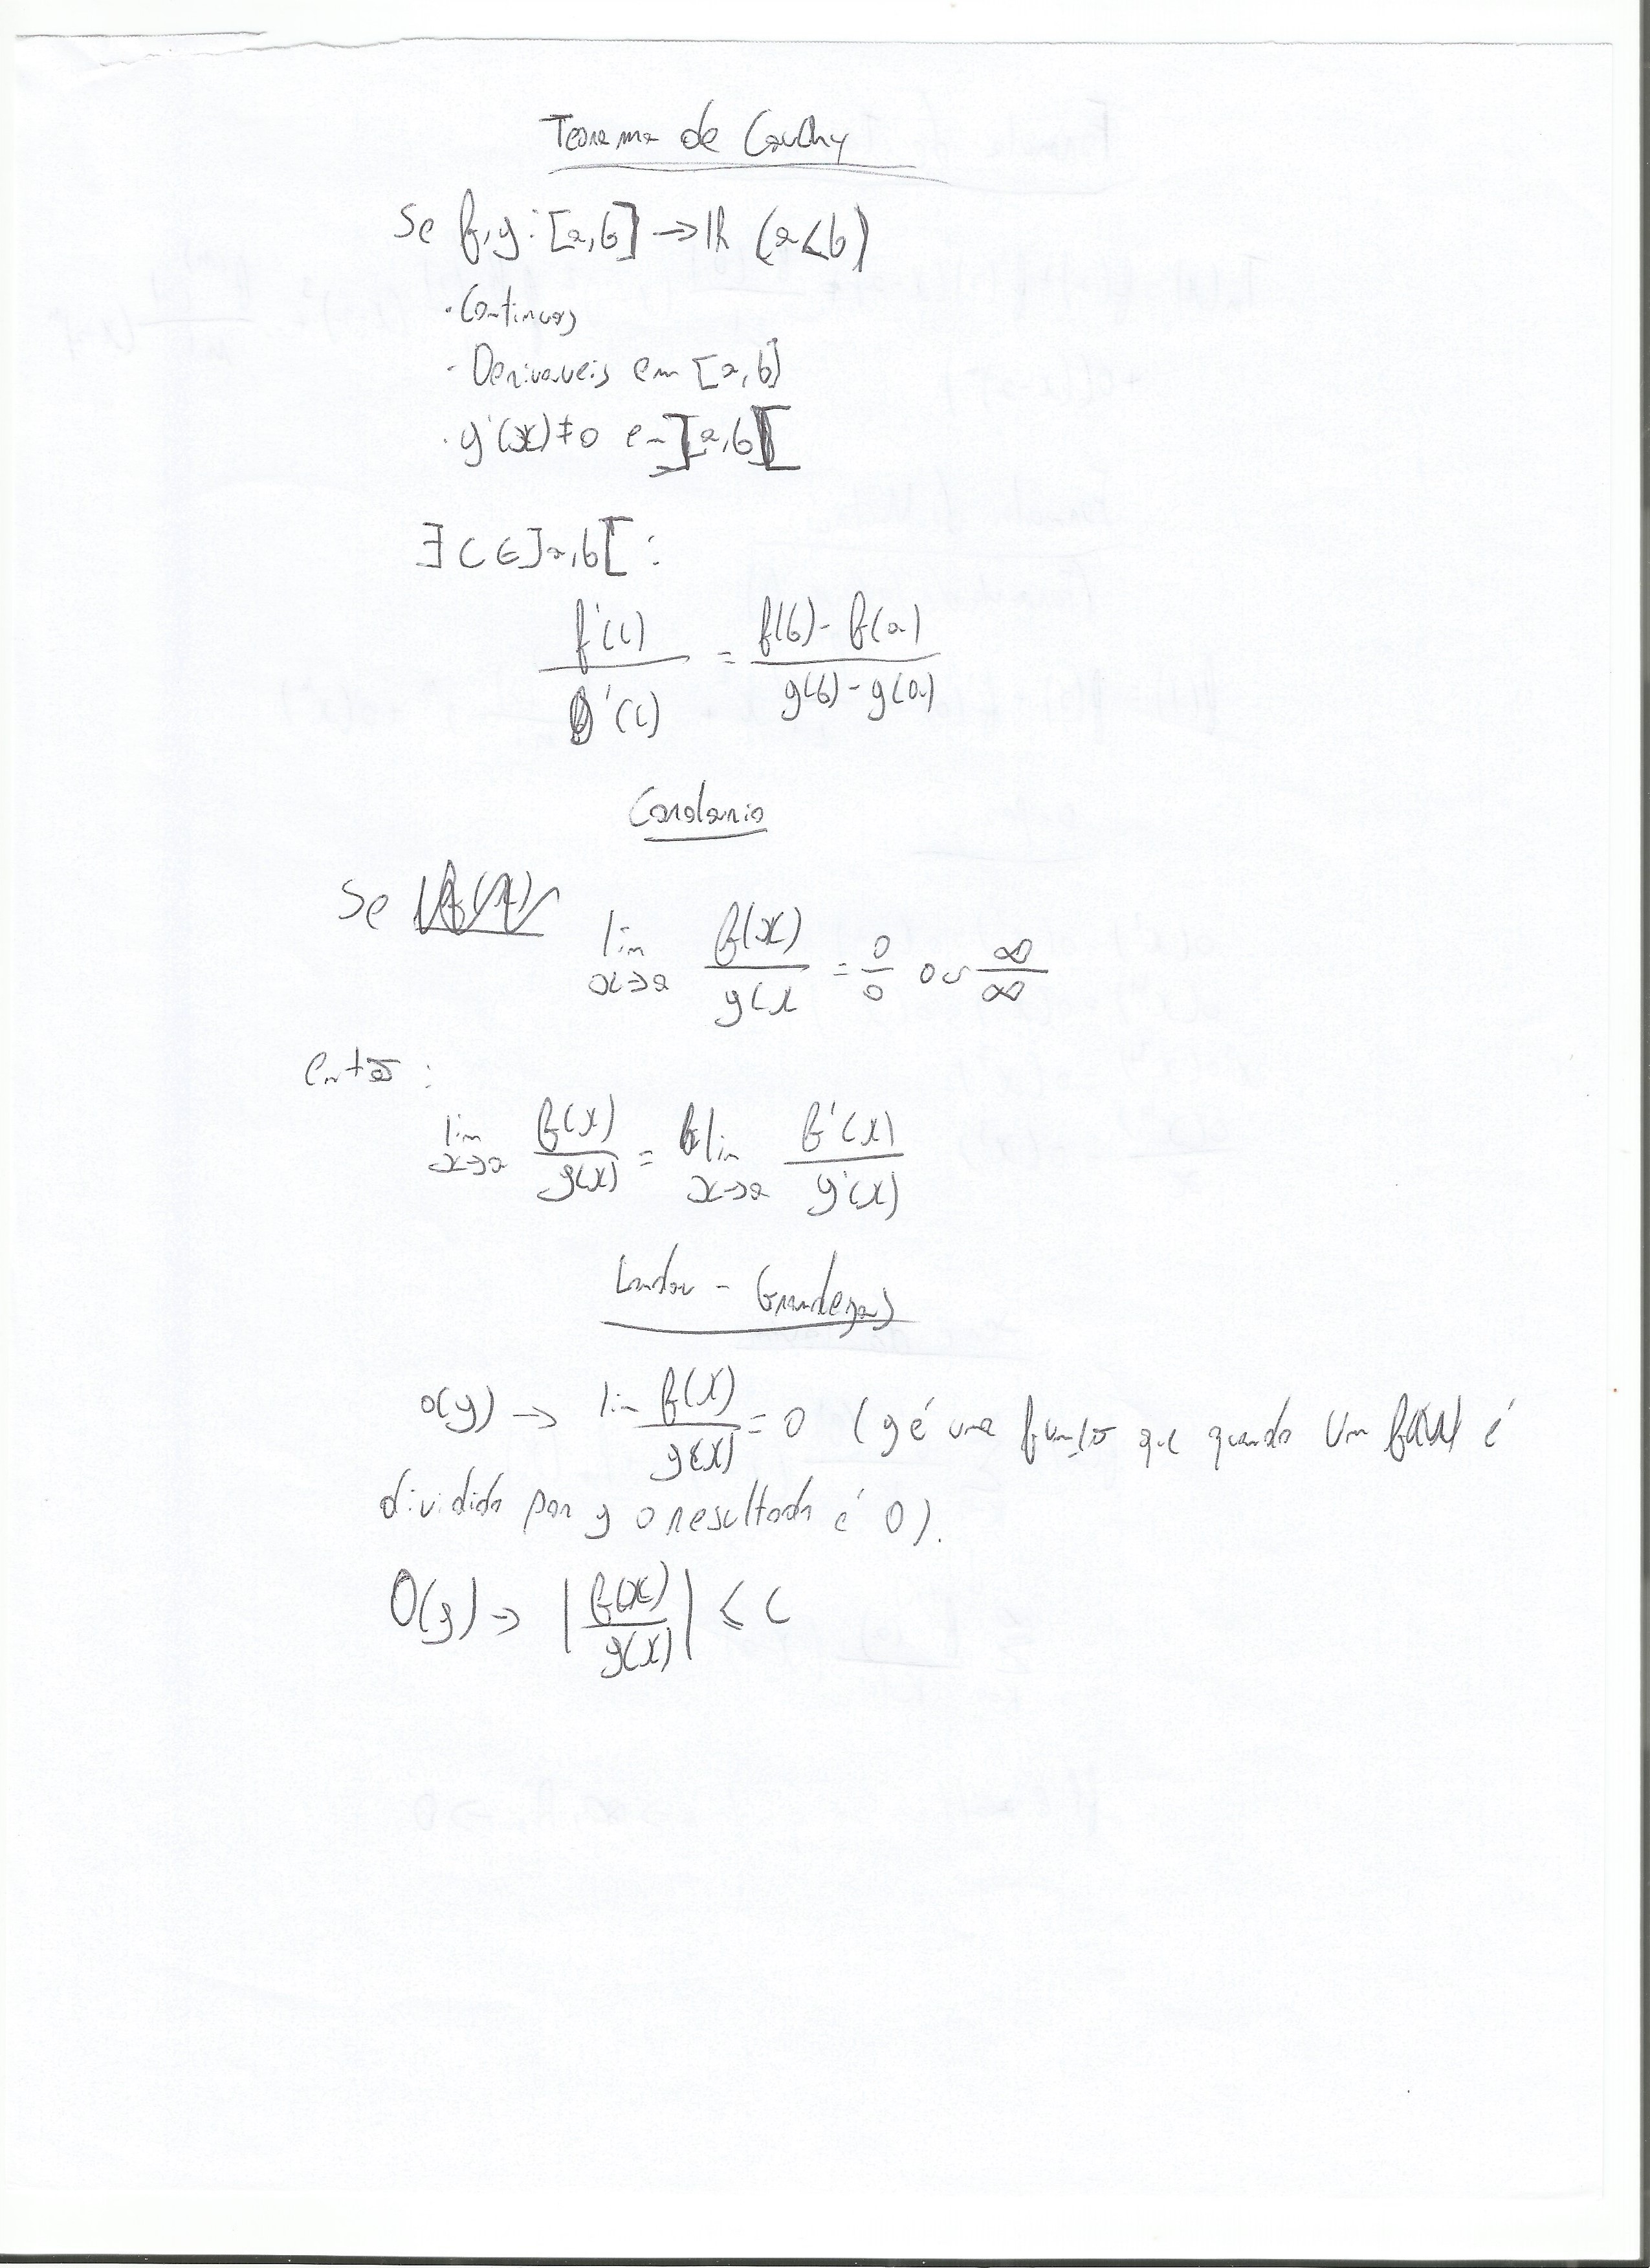 Teorema de Cauchy
Se f,g:[a,b]→ℝ (a<b)
· Continuas
· Derivaveis em [a,b]
· g'(x)≠0 em ]a,b[
∃ c ∈ ]a,b[ :
f'(c) / g'(c) = (f(b) - f(a)) / (g(b) - g(a))
Corolario
Se
lim x→a f(x) / g(x = 0/0 ou ∞/∞
então :
lim x→a f(x) / g(x) = lim x→a f'(x) / g'(x)
Landau - Grandezas
o(g) → lim f(x) / g(x) = 0 (g é uma função que quando um f(x) é
dividido por g o resultado é 0).
O(g) → | f(x) / g(x) | ≤ c